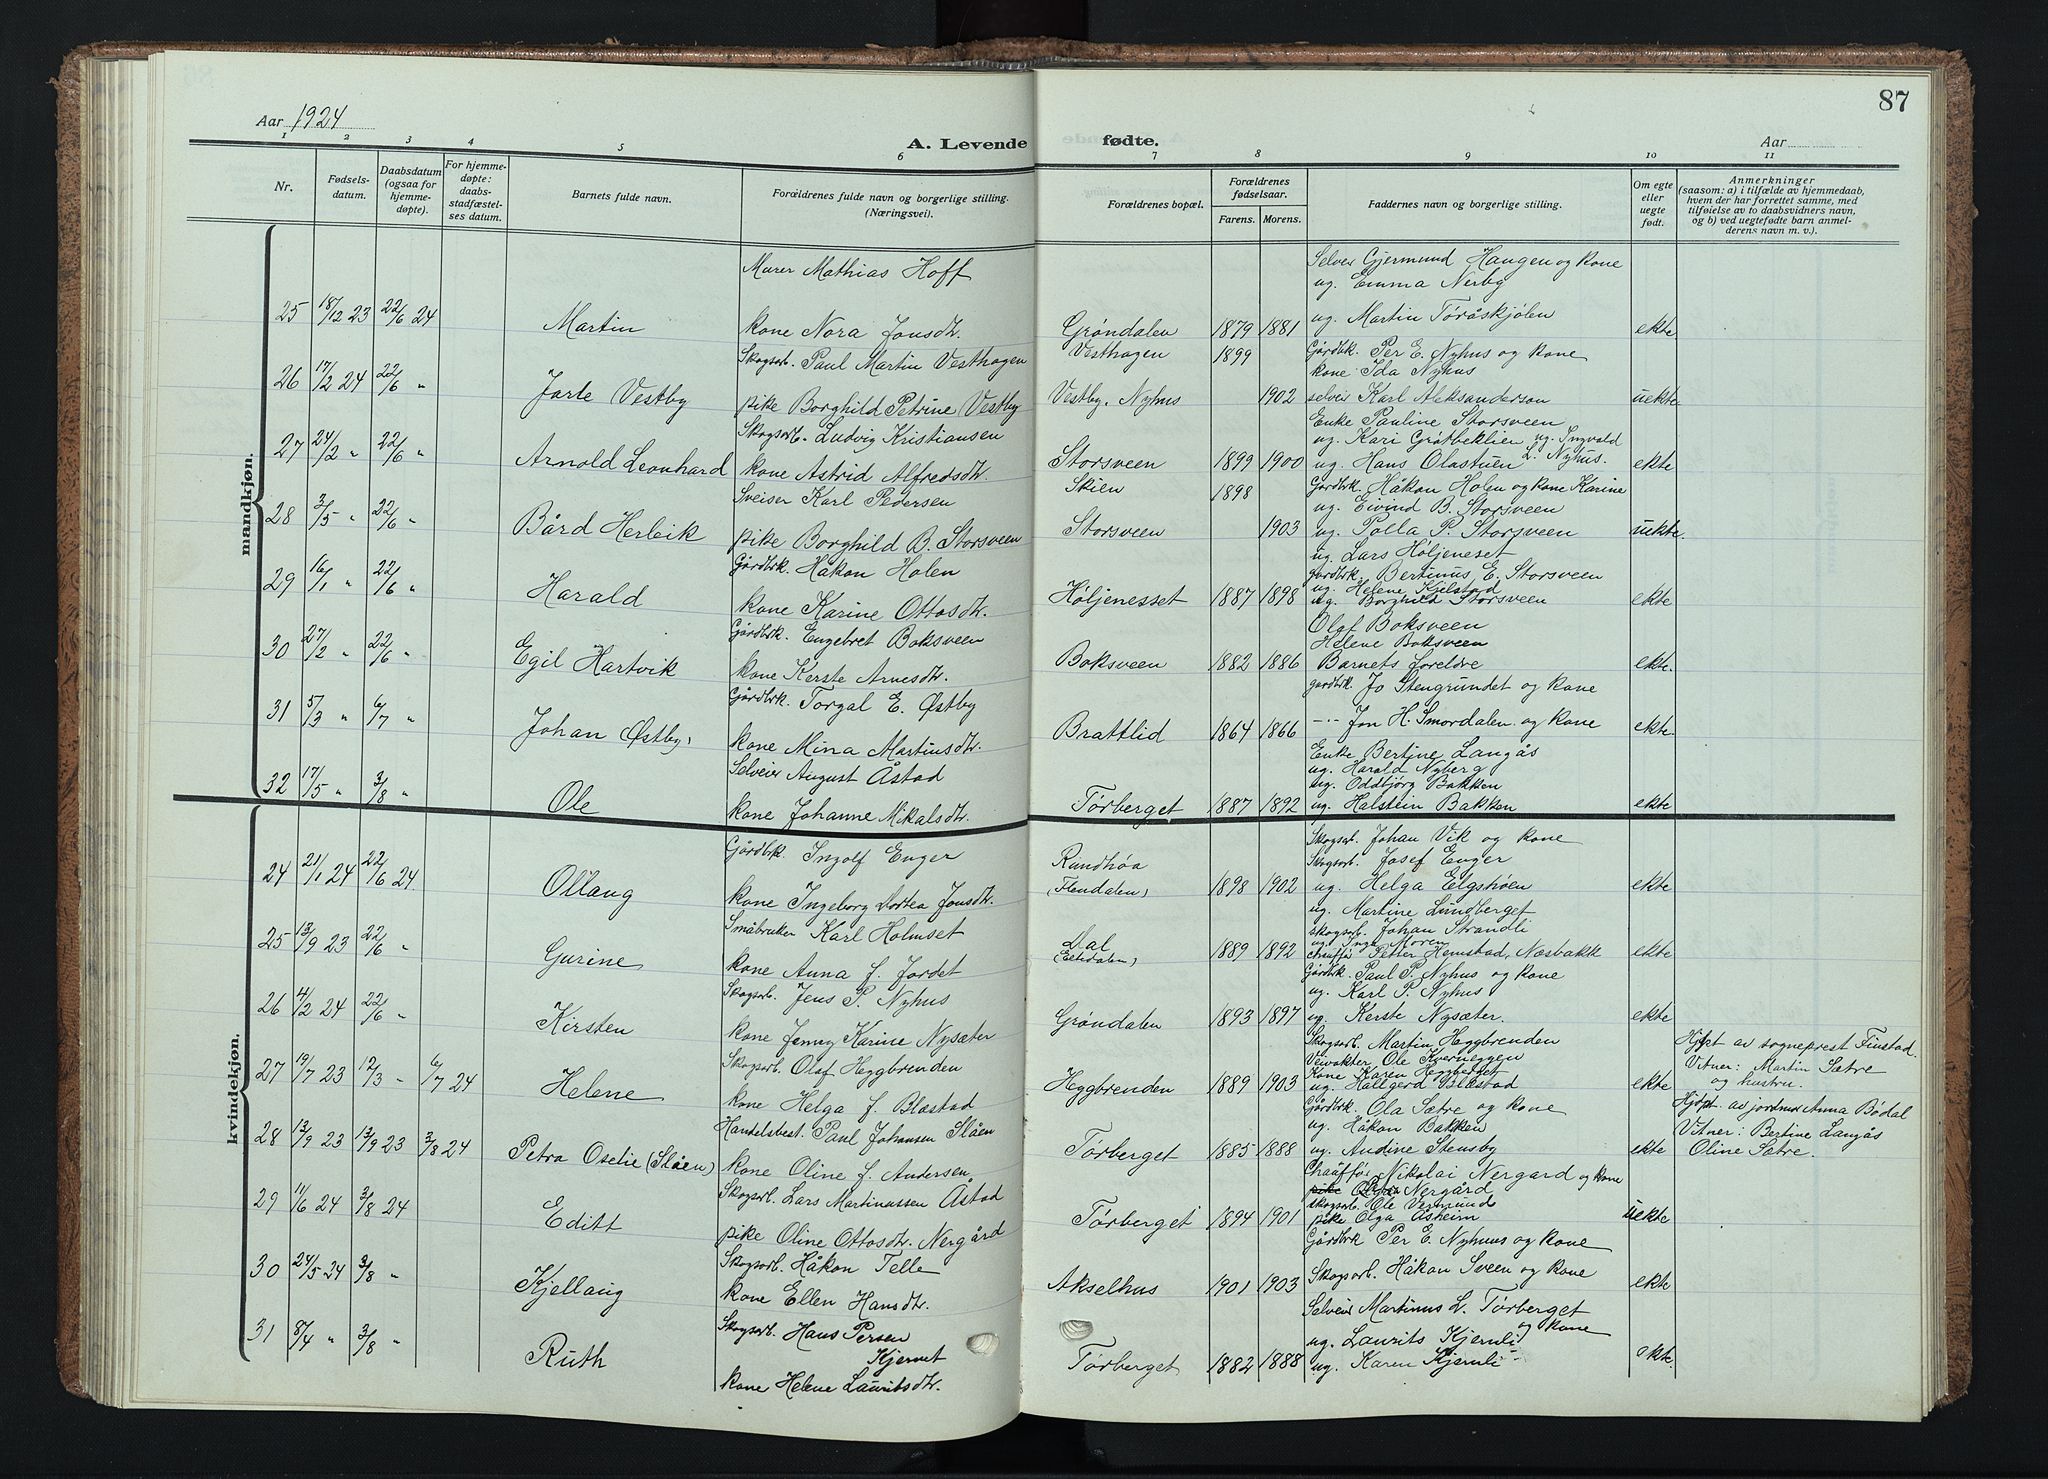 87
Aar 1924
A. Levende fødte.
Aar
1 2 3 4 5 6 7 8 9 10 11
Nr.
Fødsels-
datum.
Daabsdatum
(ogsaa for
hjemme-
døpte).
For hjemme-
døpte:
daabs-
stadfæstel-
ses datum.
Barnets fulde navn.
Forældrenes fulde navn og borgerlige stilling.
(Næringsvei).
Forældrenes bopæl.
Forældrenes
fødselsaar.
Farens. Morens.
Faddernes navn og borgerlige stilling.
Om egte
eller
uegte
født.
Anmerkninger
(saasom: a) i tilfælde av hjemmedaab,
hvem der har forrettet samme, med
tilføielse av to daabsvidners navn,
og b) ved uegtefødte barn anmel-
derens navn m. v.).
mandkjøn.
Murer Mathias Hoff
Selveier Gjermund Haugen og kone
ug. Emma Nerby
25 18/12 23 22/6 24 Martin kone Nora Jonsdtr. Grøndalen 1879 1881 ug. Martin Töråskjølen ekte
Skogsarb. Paul Martin Vesthagen Vesthagen 1899 Gårdbk. Per E. Nyhus og kone
kone Ida Nyhus
26 17/2 24 22/6 " Jarle Vestby pike Borghild Petrine Vestby Vestby, Nyhus 1902 selvei Karl Aleksanderson uekte
Skogsarb. Ludvig Kristiansen Enke Pauline Storsveen
ug. Kari Gråbeklien ug. Ingvald
27 24/2 " 22/6 " Arnold Leonhard kone Astrid Alfredsdtr. Storsveen 1899 1900 ug. Hans Olastuen L. Nyhus. ekte
Sveiser Karl Pedersen Skien 1898 Gårdbrk. Håkon Holen og kone Karine
ug. Eivind B. Storsveen
28 3/5 " 22/6 " Bård Herleik pike Borghild B. Storsveen Storsveen 1903 ug. Polla P. Storsveen uekte.
Gårdbrk. Håkon Holen ug. Lars Höljeneset
gårdbrk. Bertinus E. Storsveen
ug. Helene Kjelstad
29 16/1 " 22/6 " Harald kone Karine Ottosdtr. Höljenesset 1887 1898 ug. Borghild Storsveen ekte
Gårdbrk. Engebret Boksveen Olaf Boksveen
Helene Boksveen
30 27/2 " 22/6 " Egil Hartvik kone Kerste Arnesdtr. Boksveen 1882 1886 Barnets foreldre ekte.
Gårdbrk. Torgal E. Østby gardbrk. Jo Stengrundet og kone
31 5/3 " 6/7 " Johan Østby, kone Mina Martinsdtr. Brattlid 1864 1866 -"- Jon H. Smordalen og kone ekte
Selveier August Åstad Enke Bertine Langås
ug. Harald Nyberg
ug. Oddbjørg Bakken
32 17/5 " 3/8 " Ole kone Johanne Mikalsdtr. Törberget 1887 1892 ug. Halstein Bakken ekte
kvindekjøn.
Gårdbrk. Ingolf Enger Rundhøa Skogsarb. Johan Vik og kone
Skogsarb. Josef Enger
24 21/1 24 22/6 24 Ollaug kone Ingeborg Dortea Jonsdtr. (Flendalen) 1898 1902 ug. Helga Elgshøen ekte
ug. Martine Lundberget
Småbruker Karl Holmset Dal skogsarb. Johan Strandli
ug. Inga Moren
25 13/9 23 22/6 " Gurine kone Anna f. Jordet 1889 1892 chauffør Petter Hemstad, Næsbakk ekte
Skogsarb. Jens P. Nyhus Gårdbk. Paul P. Nyhus og kone
ug. Karl P. Nyhus
26 4/2 24 22/6 " Kirsten kone Jenny Karine Nysæter Grøndalen 1893 1897 ug. Kerste Nysæter. ekte
Skogsarb. Olaf Heggbrenden Skogsarb. Martin Heggbrenden
Veivokter Ole Kverneggen
Kone Karen Heggberget
Hjpt av sogneprest Finstad.
Vitner: Martin Sætre
og hustru.
27 19/7 23 12/3 - 6/7 24 Helene kone Helga f. Blæstad Heggbrenden 1889 1903 ug. Hallgerd Blæstad ekte
Handelsbest. Paul Johansen Slåen Gårdbrk. Ola Sætre og kone
ug. Håkon Bakken
Hjdpt. av jordmor Anna Bødal
Vitner: Bertine Langås
Oline Sætre.
28 13/9 23 13/9 23 3/8 24 Petra Oselie (Slåen) kone Oline f. Andersen Törberget 1885 1888 ug. Andine Stensby ekte
Skogsarb. Lars Martinassen Åstad Chauffør Nikolai Nergard og kone
pike Nergård
skogsarb. Ole Vermund
29 11/6 24 3/8 24 Editt pike Oline Ottosdtr. Nergård Törberget 1894 1901 pike Olga Åsheim uekte
Skogsarb. Håkon Telle Gårdbrk Per E. Nyhuus og kone
30 24/5 24 3/8 " Kjellaug kone Ellen Hansdtr. Akselhus 1901 1903 Skogsarb. Håkon Sveen og kone ekte
Skogsarb. Hans Persen Kjernet Selveier Martinus L. Törberget og kone
ug. Laurits Kjernli
31 8/4 " 3/8 " Ruth kone Helene Lauritsdtr. Törberget 1882 1888 ug. Karen Kjernli ekte.